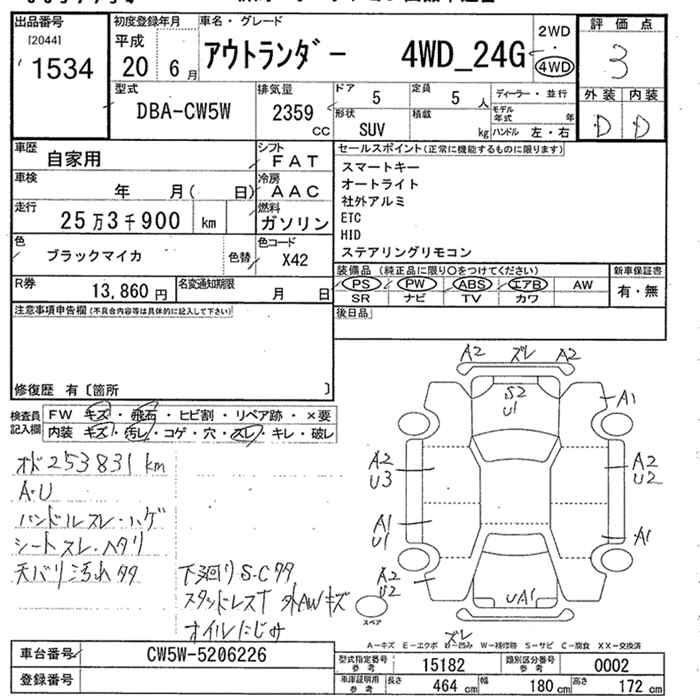 出品番号
[2044]
1534
初度登録年月
平成
20 6月
車名・グレード
アウトランダー 4WD_24G
2WD
・
4WD
評価点
3
外装 内装
D D
型式
DBA-CW5W
排気量
2359
CC
ドア
5
定員
5 人
形状
SUV
積載
kg
ディーラー・並行
モデル年式 年
ハンドル 左・右
車歴
自家用
シフト
FAT
車検
年 月( 日)
冷房
AAC
走行
25万3千900 km
燃料
ガソリン
色
ブラックマイカ
色替
色コード
X42
R券
13,860 円
名変通知期限
月 日
セールスポイント(正常に機能するものに限ります)
スマートキー
オートライト
社外アルミ
ETC
HID
ステアリングリモコン
装備品(純正品に限り〇をつけてください)
PS PW ABS エアB AW
SR ナビ TV カワ
新車保証書
有・無
後日品
注意事項申告欄(不具合内容等は具体的に記入して下さい)
修復歴 有〔箇所 〕
検査員記入欄
FW キズ・飛石・ヒビ割・リペア跡・×要
内装 キズ・汚レ・コゲ・穴・スレ・キレ・破レ
オド253831km
A・U
ハンドルスレ・ハゲ
シートスレ・ヘタリ
天バリ汚れ
下廻りS・C
スタッドレス 外AWキズ
オイルにじみ
A2 ズレ A2
S2
U1
A1
A2
U3
A2
U2
A1
U1
A1
A2
U2
UA1
スペア
ズレ
A-キズ E-エクボ U-凹み W-補修跡 S-サビ C-腐食 XX-交換済
車台番号
CW5W-5206226
登録番号
型式指定番号
参考
15182
類別区分番号
参考
0002
車庫証明用
参考
長さ 464 cm 幅 180 cm 高さ 172 cm